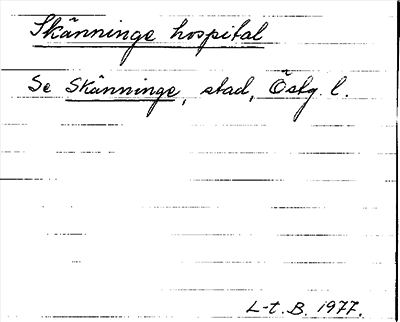 Skänninge hospital
Se Skänninge, stad, Östg. l.
L-t. B. 1977.